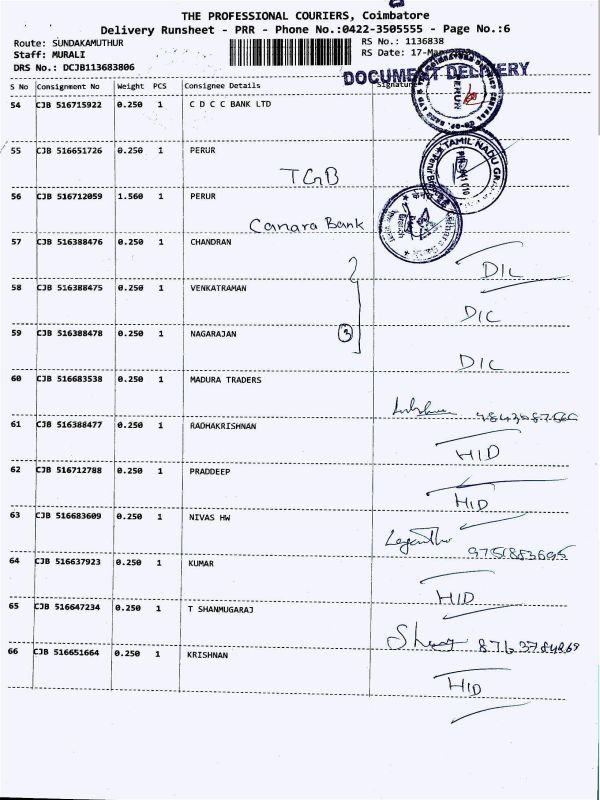 THE PROFESSIONAL COURIERS, Coimbatore
Delivery Runsheet - PRR - Phone No.:0422-3505555 - Page No.:6
Route: SUNDAKAMUTHUR
RS No.: 1136838
Staff: MURALI
RS Date: 17-Mar
DRS No.: DCJB113683806
DOCUMENT DELIVERY
S No Consignment No Weight PCS Consignee Details Signature
54 CJB 516715922 0.250 1 C D C C BANK LTD
PERUR
55 CJB 516651726 0.250 1 PERUR
TGB
TAMIL NADU
56 CJB 516712059 1.560 1 PERUR
Canara Bank
57 CJB 516388476 0.250 1 CHANDRAN
DIL
58 CJB 516388475 0.250 1 VENKATRAMAN
DIL
59 CJB 516388478 0.250 1 NAGARAJAN
3
DIL
60 CJB 516683538 0.250 1 MADURA TRADERS
61 CJB 516388477 0.250 1 RADHAKRISHNAN
HID
62 CJB 516712788 0.250 1 PRADDEEP
HID
63 CJB 516683609 0.250 1 NIVAS HW
9751883695
64 CJB 516637923 0.250 1 KUMAR
HID
65 CJB 516647234 0.250 1 T SHANMUGARAJ
66 CJB 516651664 0.250 1 KRISHNAN
HID